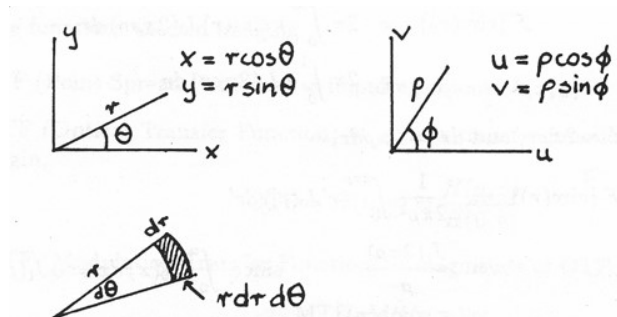 y
x = r cosθ
y = r sinθ
r
θ
x
v
u = ρ cosϕ
v = ρ sinϕ
ρ
ϕ
u
dr
r
dθ
r dr dθ